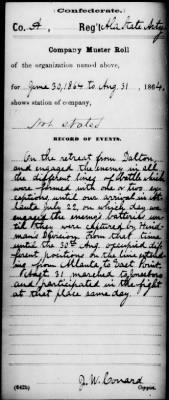 Confederate.
Co. A, Reg't Ala State Arty
Company Muster Roll
of the organization named above,
for June 30, 1864 to Aug. 31, 1864,
shows station of company,
Not stated
RECORD OF EVENTS.
On the retreat from Dalton,
and engaged the enemy in all
the different lines of battle which
were formed with one or two ex-
ceptions, until our arrival in At-
lanta July 22 on which day we
engaged the enemy's batteries un-
til they were captured by Hind-
man's Division. From that time
until the 30th Aug. occupied dif-
ferent positions on the line extend-
ing from Atlanta to East Point.
Augt 31 marched to Jonesboro
and participated in the fight
at that place same day.
(642b)
J. W. Conard
Copyist.